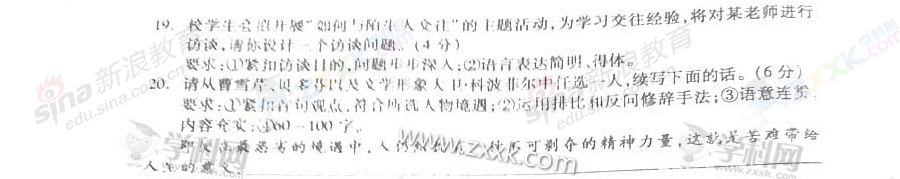 19. 校学生会拟开展“如何与陌生人交往”的主题活动,为学习交往经验,将对某老师进行
访谈,请你设计一个访谈问题。(4分)
要求:①紧扣访谈目的,问题步步深入;②语言表达简明、得体。
20. 请从曹雪芹、贝多芬以及文学形象大卫·科波菲尔中任选一人,续写下面的话。(6分)
要求:①紧扣首句观点,符合所选人物境遇;②运用排比和反问修辞手法;③语意连贯,
内容充实;④60—100字。
即使在最恶劣的境遇中,人仍然 不可剥夺的精神力量,这就是苦难带给
人生的意义。
sina 新浪教育
edu.sina.com.cn
学科网
www.zxxk.com